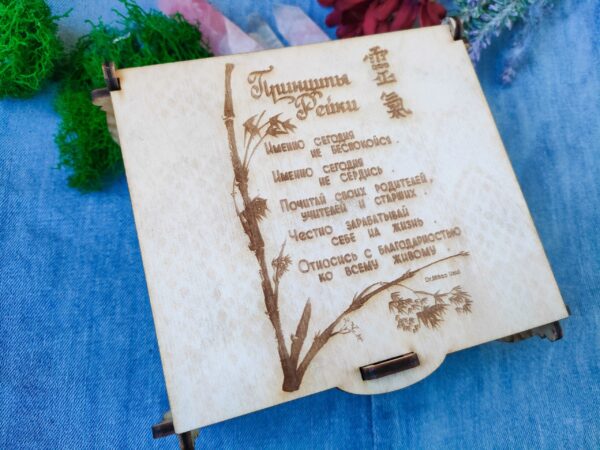 Принципы
Рейки
靈
氣
Именно сегодня
не беспокойся
Именно сегодня
не сердись
Почитай своих родителей,
учителей и старших
Честно зарабатывай
себе на жизнь
Относись с благодарностью
ко всему живому